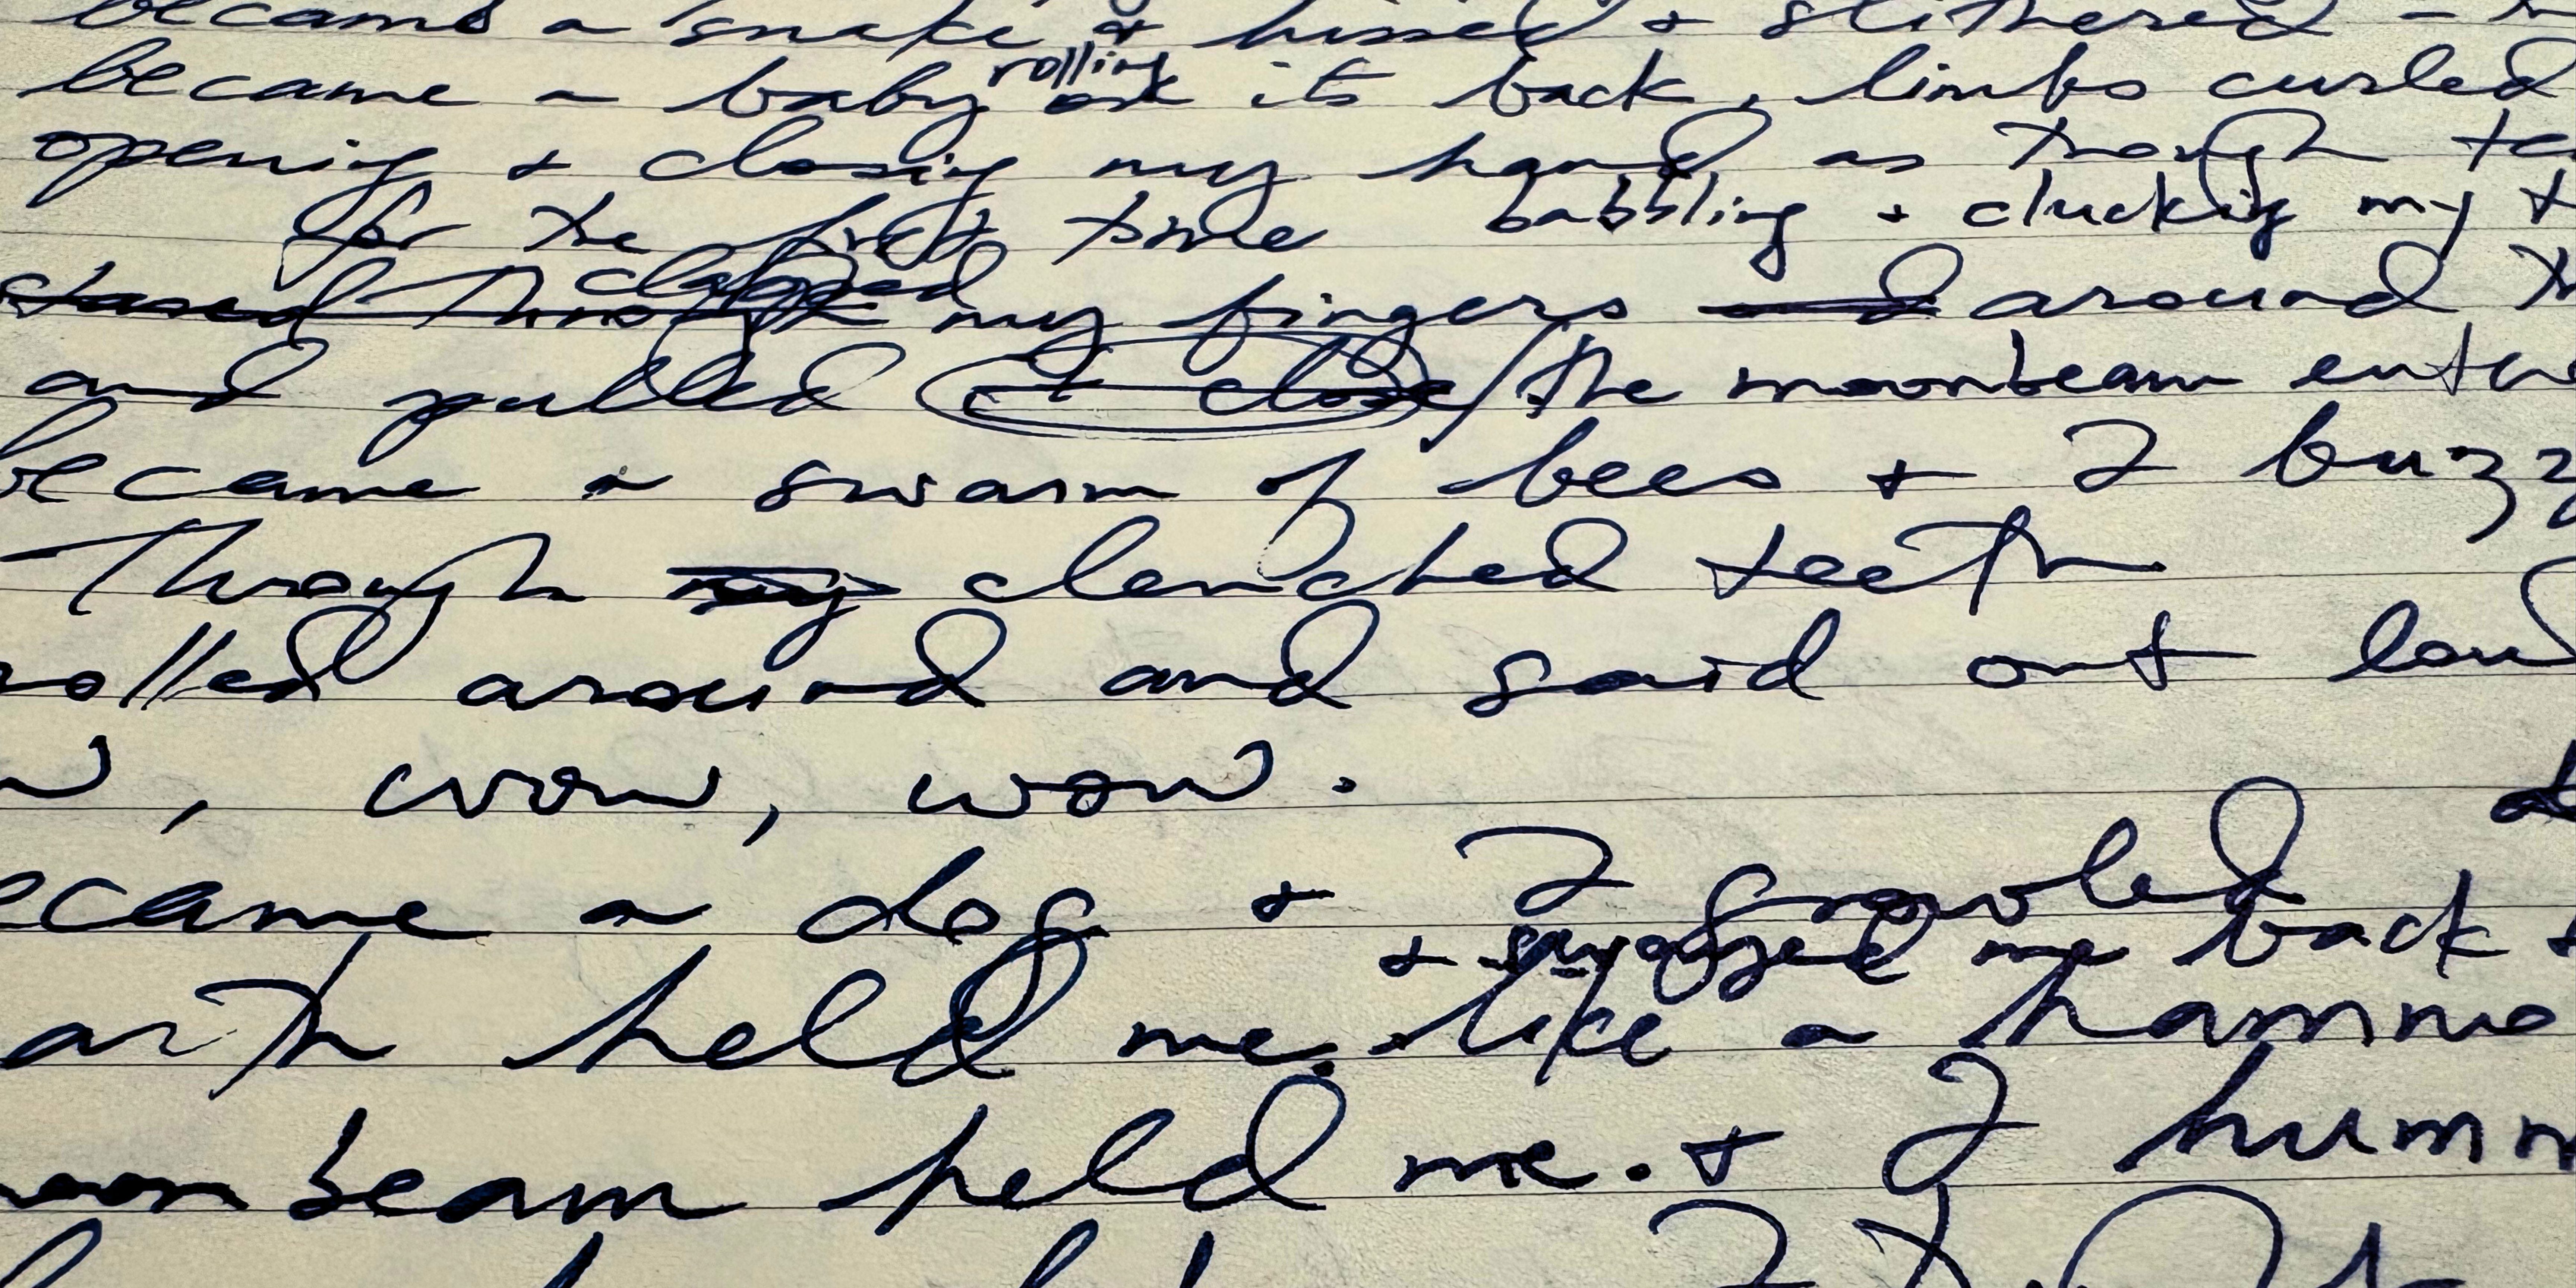 became a snake + hissed + slithered -
rolling
became a baby on its back, limbs curled
opening + closing my hand as though
for the first time babbling + clucking my
clasped
my fingers and around
and pulled it close / the moonbeam
became a swarm of bees + I buzz
Through my clenched teeth
rolled around and said out loud
, wow, wow.
became a dog + I growled
+ me back
held me. like a
moonbeam held me. + I